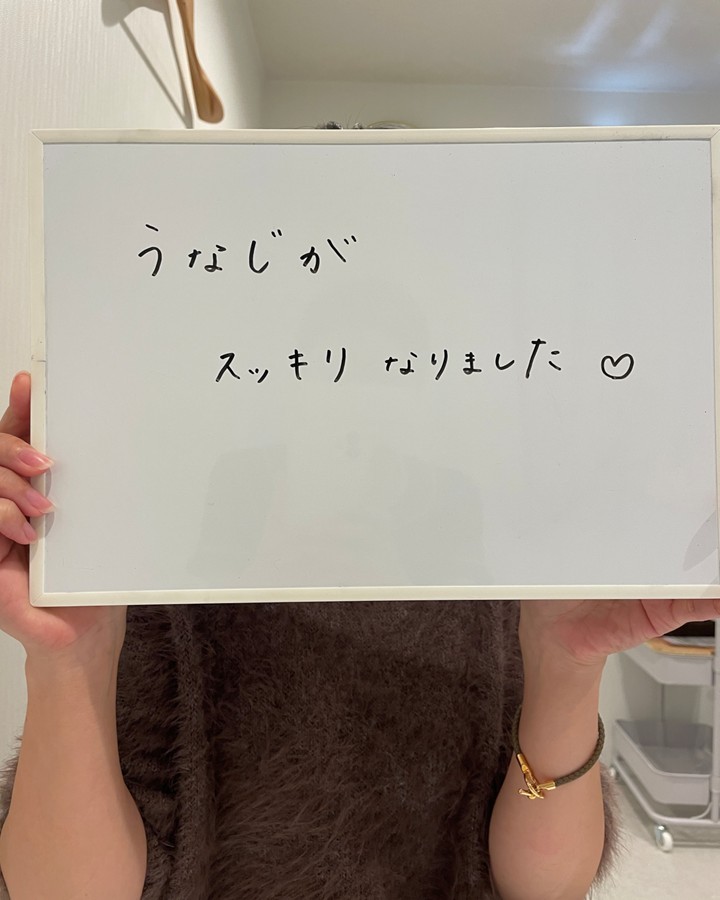 うなじが
スッキリ なりました ♡